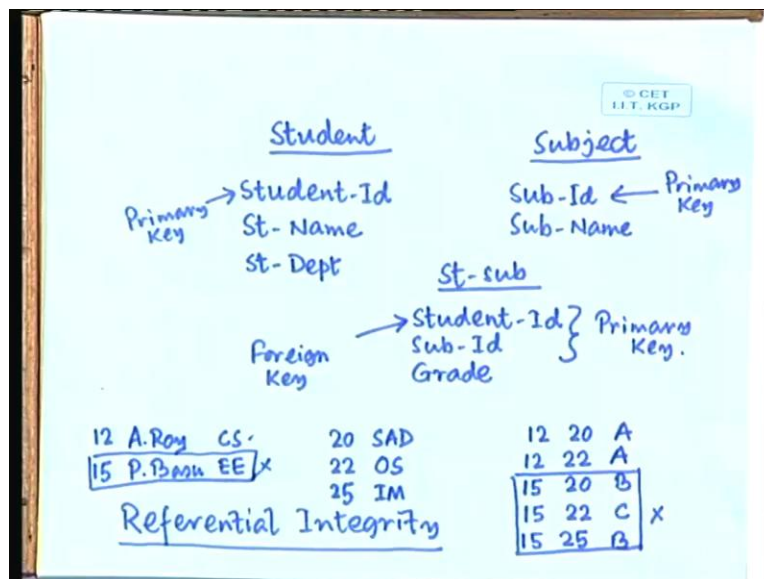 © CET
I.I.T. KGP
Student
Subject
Primary Key
Student-Id
St-Name
St-Dept
Sub-Id
Sub-Name
Primary Key
St-sub
Foreign Key
Student-Id
Sub-Id
Grade
Primary Key.
12 A.Roy CS.
15 P.Basu EE x
20 SAD
22 OS
25 IM
12 20 A
12 22 A
15 20 B
15 22 C x
15 25 B
Referential Integrity